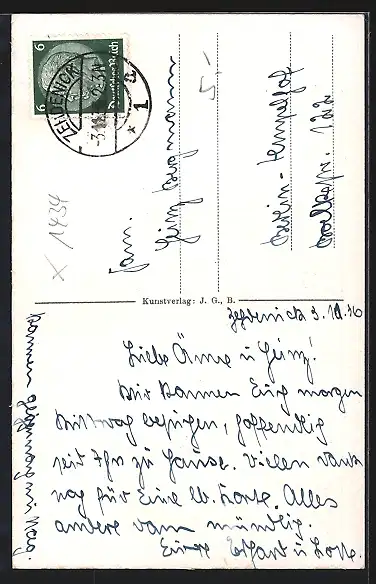 6
6
Deutsches Reich
ZEHDENICK
a
1
5.-
x 1434
Fam.
Heinz Bergmann
Berlin - Tempelhof
Kunstverlag: J. G., B.
Zehdenick 3.
Liebe Änne u. Heinz!
Wir kommen Euch morgen
Mittwoch besuchen, hoffentlich
seid Ihr zu Hause. Vielen Dank
noch für Eure lb. Karte. Alles
andere dann mündlich.
Eure u.
kommen